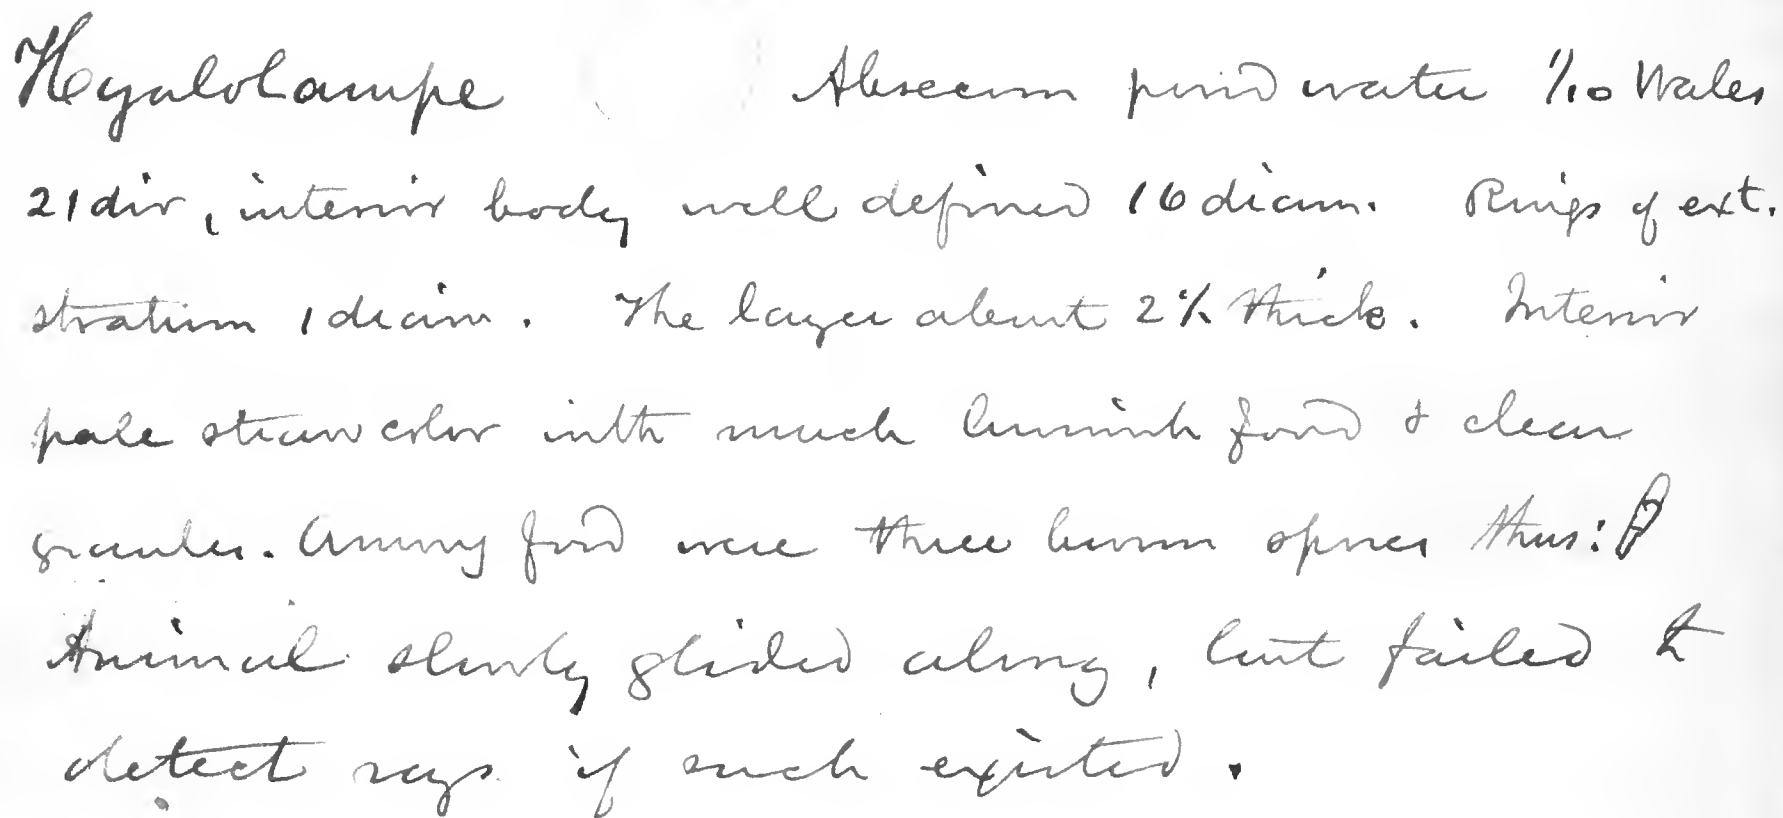 Hyalolampe Absecom pond water 1/10 Wales
21 div, interior body well defined 16 diam. Rings of ext.
stratum 1 diam. The layer about 2½ thick. Interior
pale straw color with much brownish food & clear
granules. Among food were three brown spores thus:
Animal slowly glided along, but failed to
detect rays if such existed.